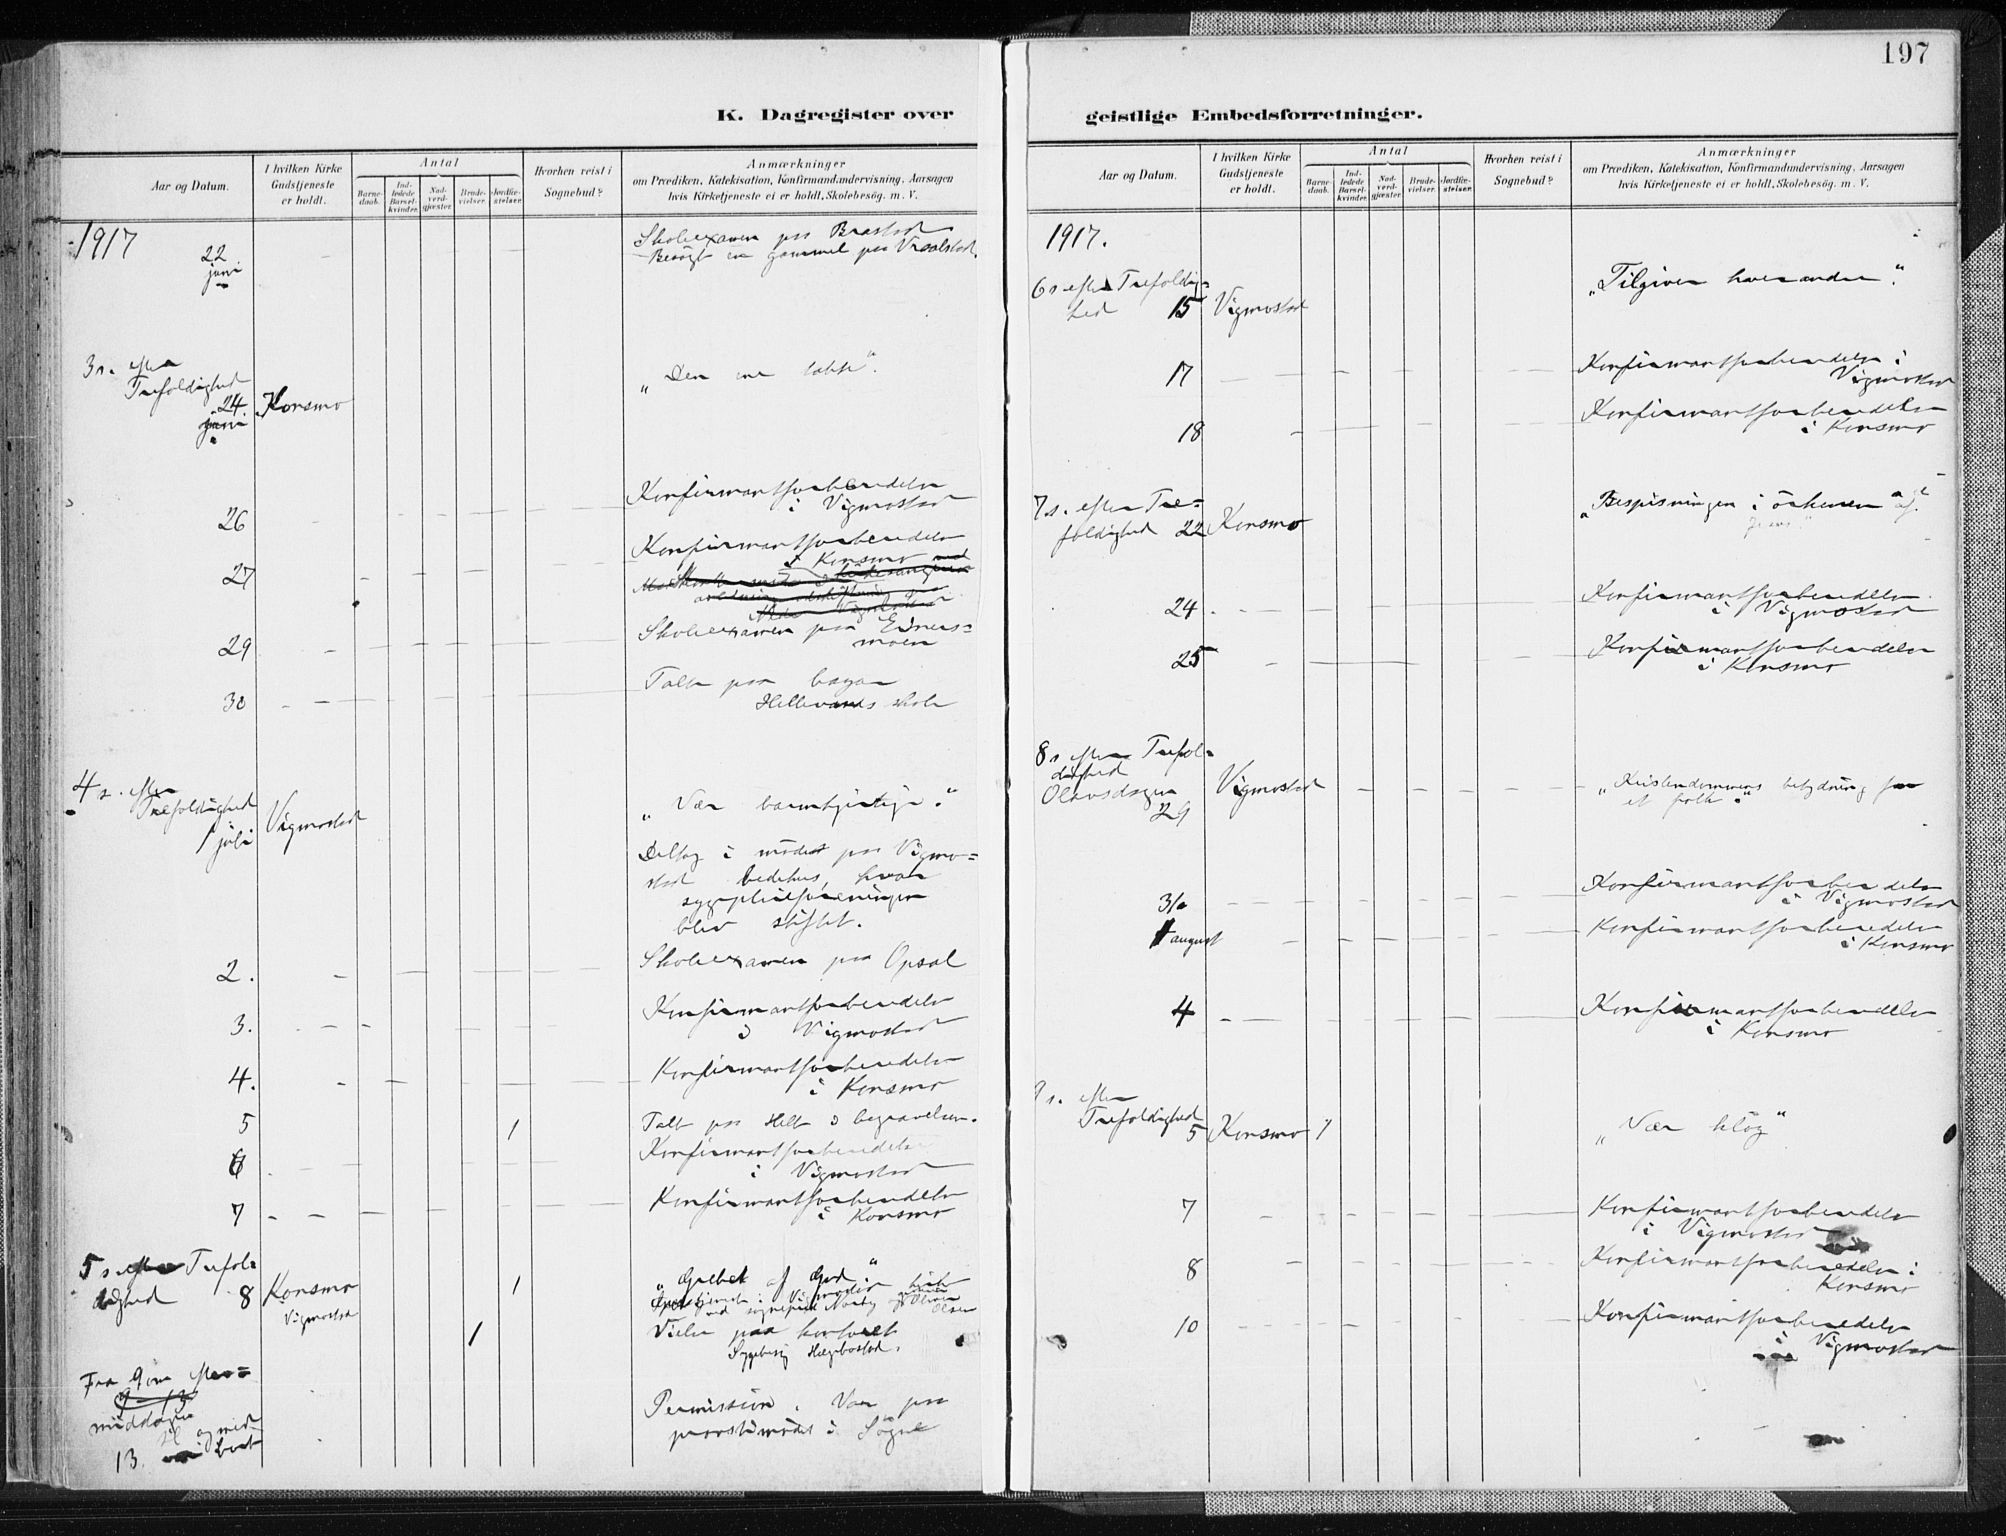 197
K. Dagregister over
geistlige Embedsforretninger.
Aar og Datum.
I hvilken Kirke
Gudstjeneste
er holdt.
Antal
Barne-
daab.
Ind-
ledede
Barsel-
kvinder.
Nad-
verd-
gjæster.
Brude-
vielser.
Jordfæ-
stelser.
Hvorhen reist i
Sognebud?
Anmærkninger
om Prædiken, Katekisation, Konfirmandundervisning, Aarsagen
hvis Kirketjeneste ei er holdt, Skolebesøg. m. V.
1917
22
juni
Skoleexamen paa Brastad
Besøgt en gammel paa Vraalstad.
3 s. efter
Trefoldighed
24.
juni
Konsmo
"Den ene tabte".
26
Konfirmantforberedelse
i Vigmostad
27
Konfirmantforberedelse
i Konsmo
29
Skoleexamen paa Eines=
moen
30
Talte paa
Hellevands skole
4 s. efter
Trefoldighed
1 juli
Vigmostad
"Vær barmhjertige."
Deltog i mødet paa Vigmo=
stad bedehus, hvor
sygepleieforeningen
blev stiftet.
2.
Skoleexamen paa Opsal
3.
Konfirmantforberedelse
i Vigmostad
4.
Konfirmantforberedelse
i Konsmo
5
1
Talte paa Helle i begravelsen.
6
Konfirmantforberedelse
i Vigmostad
7
Konfirmantforberedelse
i Konsmo
5 s. efter Trefol=
dighed 8
Konsmo
Vigmostad
1
"Grebet af Gud"
i Vigmostad kirke
ved sogneprest
Olsen
1
Vielse paa kontoret
Sygebesøg Hægebostad.
Fra 9de efter=
middagen
til og med
13.
Permission. Var paa
provstimødet i Søgne
Aar og Datum.
I hvilken Kirke
Gudstjeneste
er holdt.
Antal
Barne-
daab.
Ind-
ledede
Barsel-
kvinder.
Nad-
verd-
gjæster.
Brude-
vielser.
Jordfæ-
stelser.
Hvorhen reist i
Sognebud?
Anmærkninger
om Prædiken, Katekisation, Konfirmandundervisning, Aarsagen
hvis Kirketjeneste ei er holdt, Skolebesøg. m. V.
1917.
6 s. efter Trefoldig=
hed 15
Vigmostad
"Tilgiver hverandre".
17
Konfirmantforberedelse i
Vigmostad
18
Konfirmantforberedelse
i Konsmo
7 s. efter Tre=
foldighed 22
Konsmo
"Bespisningen i ørkenen
24
Konfirmantforberedelse
i Vigmostad
25
Konfirmantforberedelse
i Konsmo
8 s. efter Trefol=
dighed
Olavsdagen
29
Vigmostad
"Kristendommens betydning for
et folk."
31
Konfirmantforberedelse
i Vigmostad
1 august
Konfirmantforberedelse
i Konsmo
4
Konfirmantforberedelse
i Konsmo
9 s. efter
Trefoldighed
5
Konsmo
1
"Vær klog"
7
Konfirmantforberedelse
i Vigmostad
8
Konfirmantforberedelse i
Konsmo
10
Konfirmantforberedelse
i Vigmostad